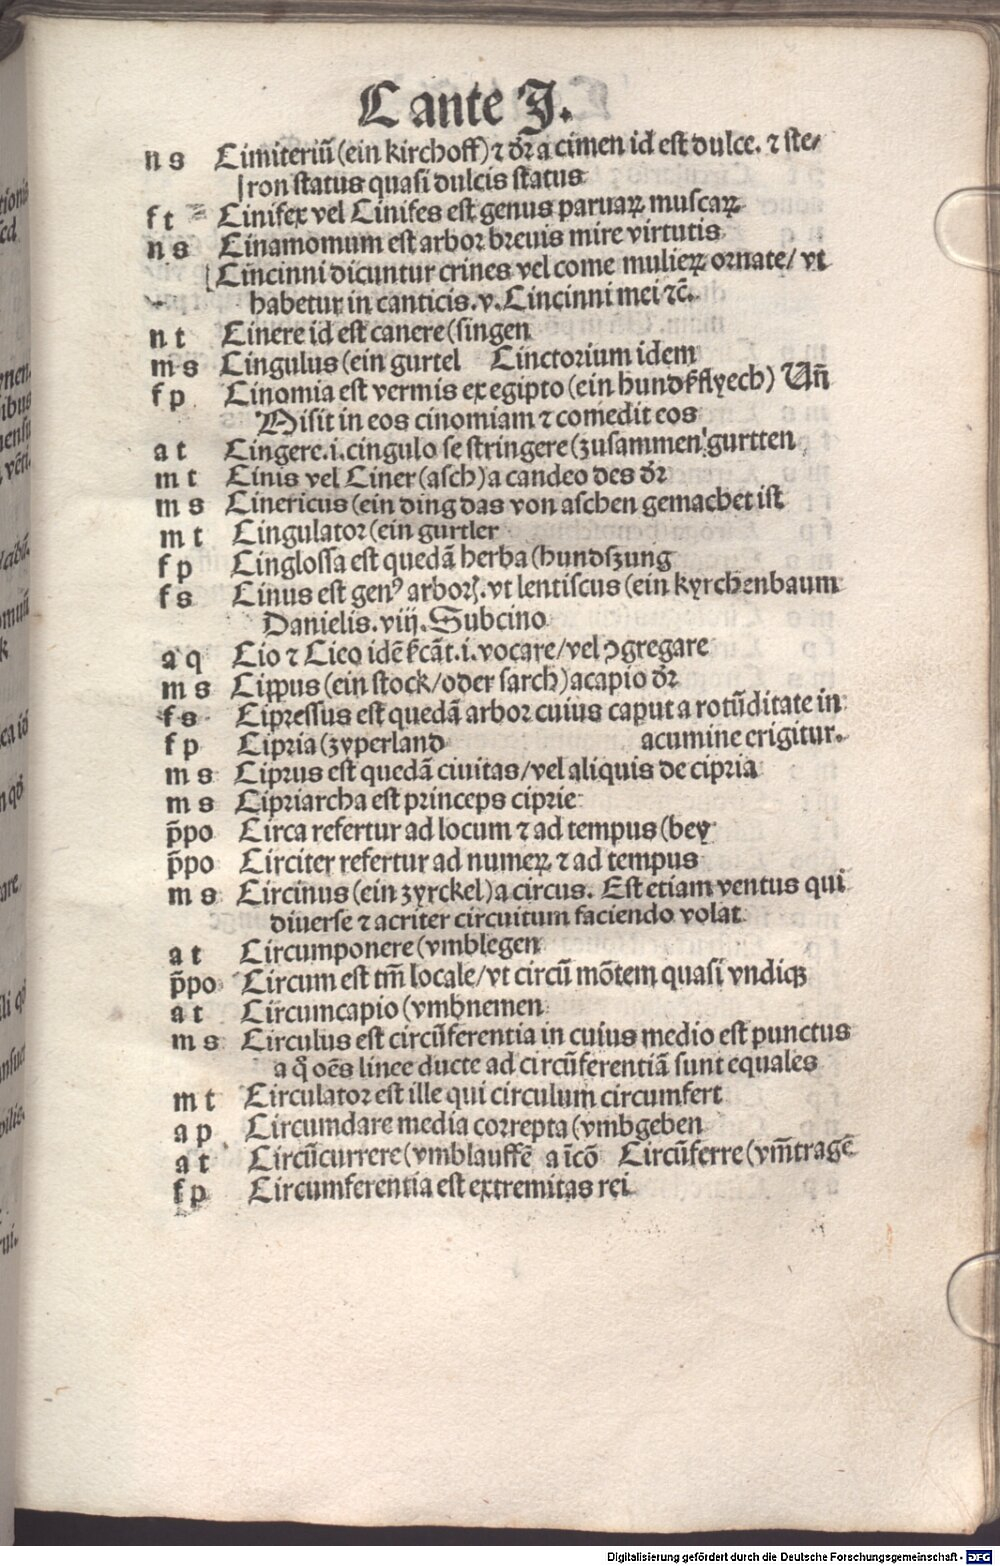 C ante J.
n s Cimiteriū (ein kirchoff) ⁊ dr̄ a cimen id est dulce. ⁊ ste/
ron status quasi dulcis status
f t Cinifex vel Cinifes est genus paruaꝝ muscaꝝ
n s Cinamomum est arbor breuis mire virtutis
Cincinni dicuntur crines vel come mulieꝝ ornate/ vt
habetur in canticis. v. Cincinni mei ⁊c̄.
n t Cinere id est canere (singen
m s Cingulus (ein gurtel Cinctorium idem
f p Cinomia est vermis ex egipto (ein hundsflyech) Vn̄
Misit in eos cinomiam ⁊ comedit eos
a t Cingere .i. cingulo se stringere (zusammen gurtten
m t Cinis vel Ciner (asch) a candeo des dr̄
m s Cinericus (ein ding das von aschen gemachet ist
m t Cingulator (ein gurtler
f p Cinglossa est quedā herba (hundszung
f s Cinus est genꝰ arboꝝ. vt lentiscus (ein kyrchenbaum
Danielis. viij. Sub cino
a q Cio ⁊ Cieo idē s̄cāt .i. vocare/ vel ꝯgregare
m s Cippus (ein stock/ oder sarch) a capio dr̄
f s Cipressus est quedā arbor cuius caput a rotūditate in
f p Cipria (zyperland acumine erigitur.
m s Ciprus est quedā ciuitas/ vel aliquis de cipria
m s Cipriarcha est princeps ciprie
p̄po Circa refertur ad locum ⁊ ad tempus (bey
p̄po Circiter refertur ad numeꝝ ⁊ ad tempus
m s Circinus (ein zyrckel) a circus. Est etiam ventus qui
diuerse ⁊ acriter circuitum faciendo volat
a t Circumponere (vmblegen
p̄po Circum est tm̄ locale/ vt circū mōtem quasi vndiqꝫ
a t Circumcapio (vmbnemen
m s Circulus est circūferentia in cuius medio est punctus
a q̊ oēs linee ducte ad circūferentiā sunt equales
m t Circulator est ille qui circulum circumfert
a p Circumdare media correpta (vmbgeben
a t Circūcurrere (vmblauffē a īcō Circūferre (vm̄tragē
f p Circumferentia est extremitas rei
Digitalisierung gefördert durch die Deutsche Forschungsgemeinschaft - DFG